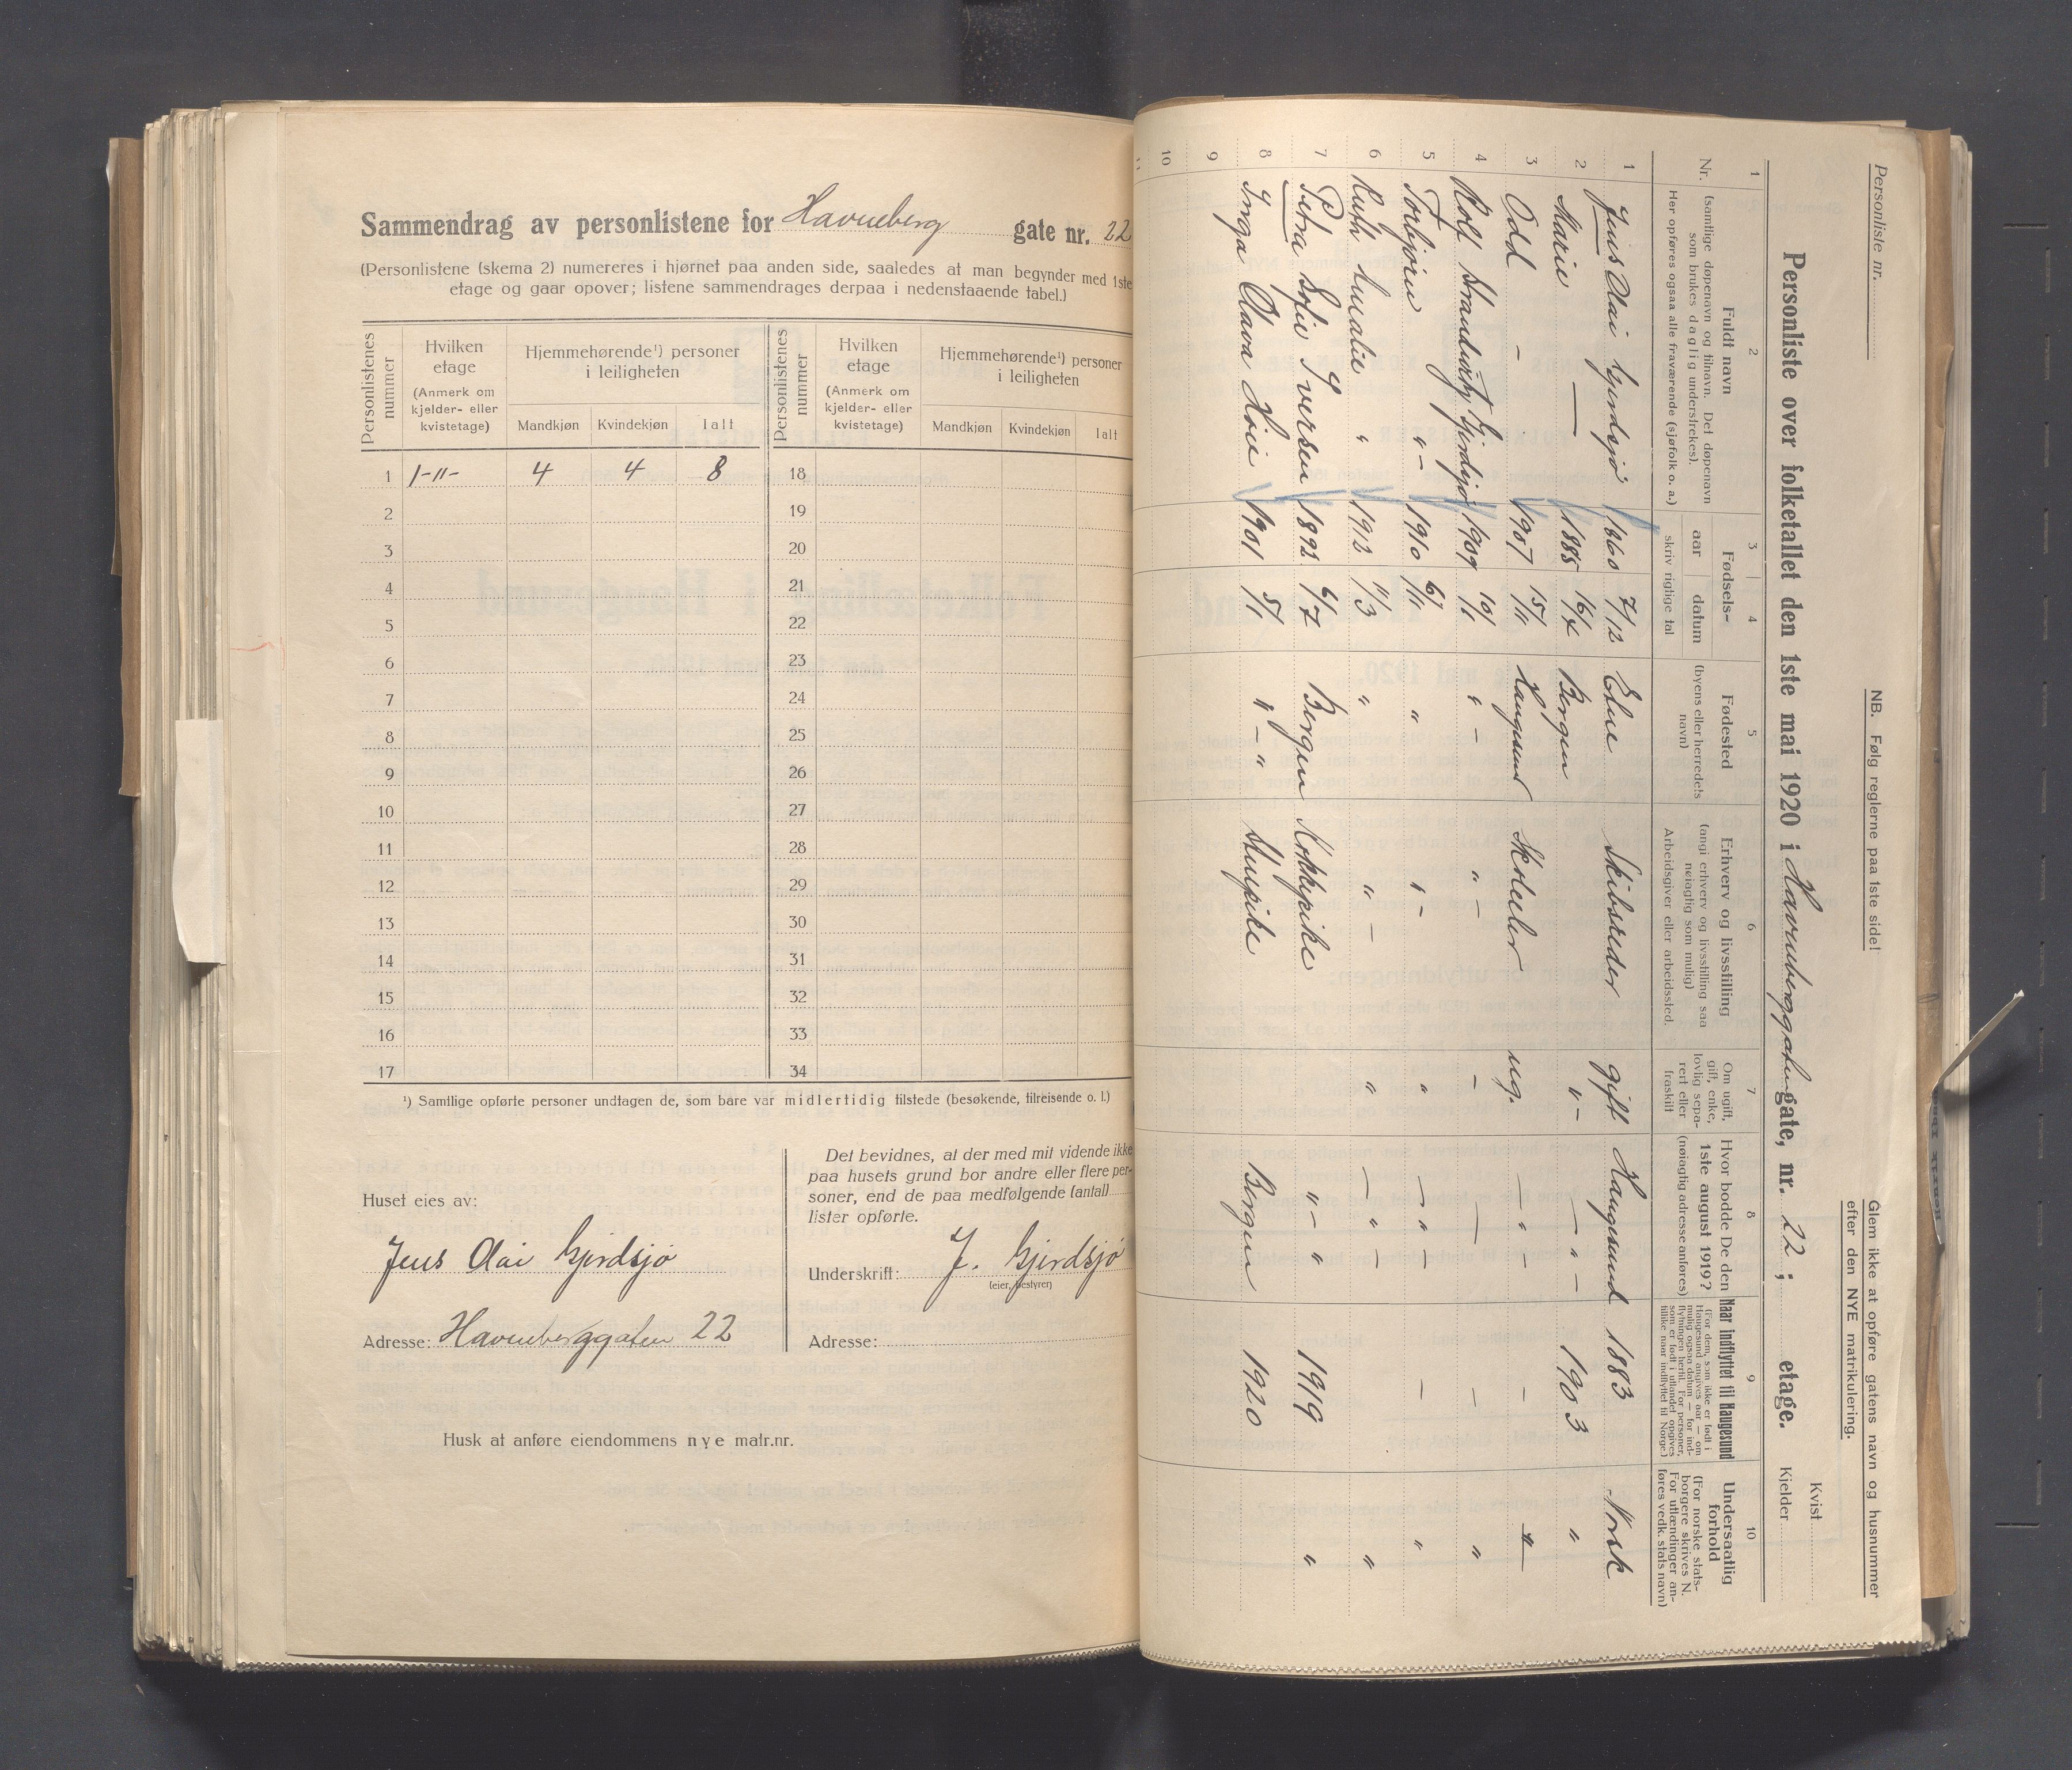 Sammendrag av personlistene for Havneberg gate nr. 22
(Personlistene (skema 2) numereres i hjørnet paa anden side, saaledes at man begynder med 1ste
etage og gaar opover; listene sammendrages derpaa i nedenstaaende tabel.)
Personlistenes nummer
Hvilken etage (Anmerk om kjelder- eller kvistetage)
Hjemmehørende¹) personer i leiligheten
Mandkjøn Kvindekjøn Ialt
Personlistenes nummer
Hvilken etage (Anmerk om kjelder- eller kvistetage)
Hjemmehørende¹) personer i leiligheten
Mandkjøn Kvindekjøn Ialt
1 1-11- 4 4 8 18
2 19
3 20
4 21
5 22
6 23
7 24
8 25
9 26
10 27
11 28
12 29
13 30
14 31
15 32
16 33
17 34
¹) Samtlige opførte personer undtagen de, som bare var midlertidig tilstede (besøkende, tilreisende o. l.)
Huset eies av:
Jens Olai Gjerdsjø
Adresse: Havneberggaten 22
Det bevidnes, at der med mit vidende ikke
paa husets grund bor andre eller flere per-
soner, end de paa medfølgende (antal)
lister opførte.
Underskrift: J. Gjerdsjø
(eier, bestyrer)
Adresse:
Husk at anføre eiendommens nye matr.nr.
Personliste nr.
NB. Følg reglerne paa 1ste side!
Glem ikke at opføre gatens navn og husnummer
efter den NYE matrikulering.
Personliste over folketallet den 1ste mai 1920 i Havneberggaten gate, nr. 22; etage.
Kvist
Kjelder
1 2 3 4 5 6 7 8 9 10
Nr.
Fuldt navn
(samtlige døpenavn og tilnavn. Det døpenavn
som brukes daglig understrekes).
Her opføres ogsaa alle fraværende (sjøfolk o. a.)
Fødsels-
aar datum
skriv rigtige tal
Fødested
(byens eller herredets
navn)
Erhverv og livsstilling
(angi erhverv og livsstilling saa
nøiagtig som mulig)
Arbeidsgiver eller arbeidssted.
Om ugift,
gift, enke,
lovlig sepa-
rert eller
fraskilt
Hvor bodde De den
1ste august 1919?
(nøiagtig adresse anføres)
Naar indflyttet til Haugesund
(For dem, som ikke er født i
Haugesund angives aar — om
mulig ogsaa datum — for ind-
flytningen hertil. For personer,
som er født i utlandet opgives
tillike naar indflyttet til Norge.)
Undersaatlig
forhold
(For norske stats-
borgere skrives N.
For utlændinger an-
føres vedk. stats navn)
1 Jens Olai Gjerdsjø 1860 7/12 Elne Skibsreder gift Haugesund 1883 Norsk
2 Marie — 1885 16/7 Bergen "- — " - 1903 "
3 Odd - 1907 15/11 Haugesund Skoleelev ug. — " - - "
4 Rolf Strandvig Gjerdsjø 1909 10/1 " - " - - — - "
5 Torbjørn " - 1910 6/11 " " - " — " - - "
6 Ruth Amalie " 1912 11/3 " " - " — " - "
7 Petra Sofie Iversen 1892 6/7 Bergen Kokkepike " - " 1919 "
8 Inga Olava Høie 1901 5/1 " - " Stuepike Bergen 1920
9
10
11